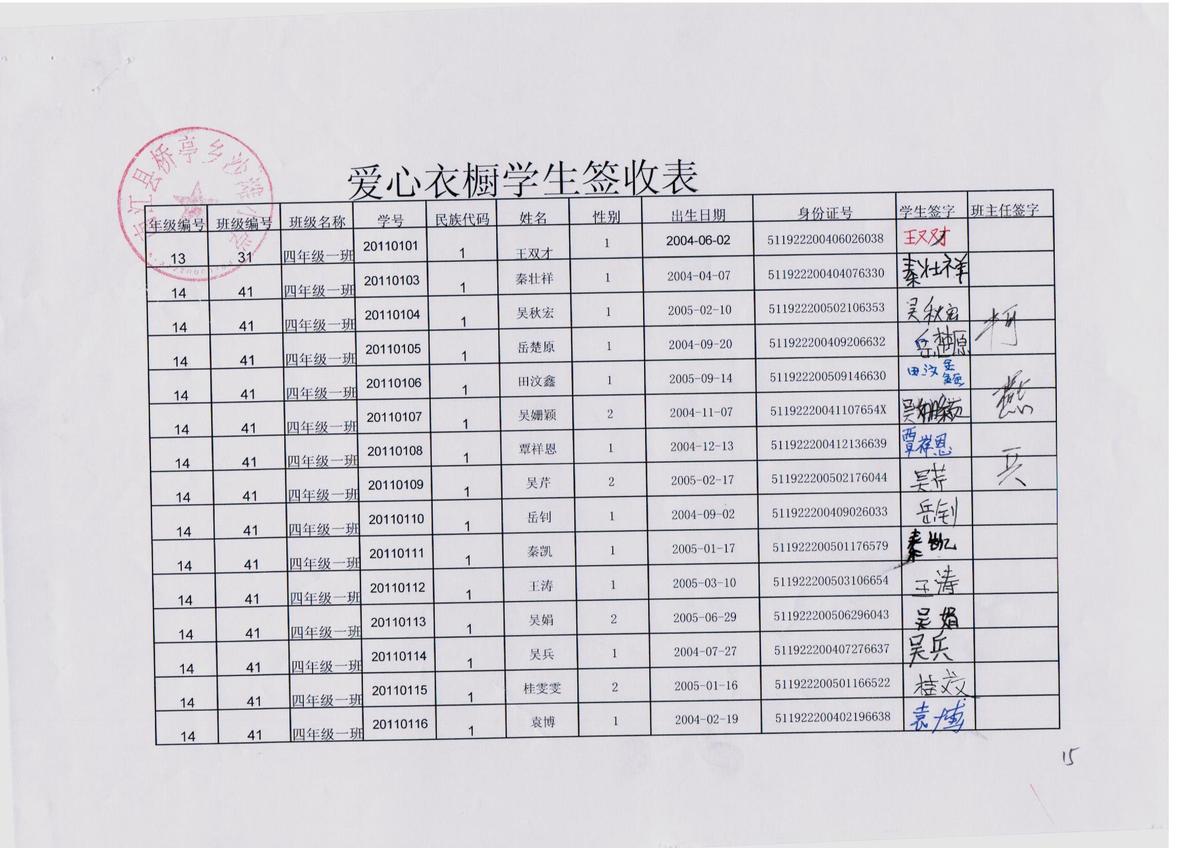 江县桥亭乡沙滩
爱心衣橱学生签收表
年级编号 班级编号 班级名称 学号 民族代码 姓名 性别 出生日期 身份证号 学生签字 班主任签字
13 31 四年级一班 20110101 1 王双才 1 2004-06-02 511922200406026038 王双才
14 41 四年级一班 20110103 1 秦壮祥 1 2004-04-07 511922200404076330 秦壮祥
14 41 四年级一班 20110104 1 吴秋宏 1 2005-02-10 511922200502106353 吴秋宏
14 41 四年级一班 20110105 1 岳楚原 1 2004-09-20 511922200409206632 岳楚原
14 41 四年级一班 20110106 1 田汶鑫 1 2005-09-14 511922200509146630 田汶鑫
14 41 四年级一班 20110107 1 吴姗颖 2 2004-11-07 51192220041107654X 吴姗颖
14 41 四年级一班 20110108 1 覃祥恩 1 2004-12-13 511922200412136639 覃祥恩
14 41 四年级一班 20110109 1 吴芹 2 2005-02-17 511922200502176044 吴芹
14 41 四年级一班 20110110 1 岳钊 1 2004-09-02 511922200409026033 岳钊
14 41 四年级一班 20110111 1 秦凯 1 2005-01-17 511922200501176579 秦凯
14 41 四年级一班 20110112 1 王涛 1 2005-03-10 511922200503106654 王涛
14 41 四年级一班 20110113 1 吴娟 2 2005-06-29 511922200506296043 吴娟
14 41 四年级一班 20110114 1 吴兵 1 2004-07-27 511922200407276637 吴兵
14 41 四年级一班 20110115 1 桂雯雯 2 2005-01-16 511922200501166522 桂文文
14 41 四年级一班 20110116 1 袁博 1 2004-02-19 511922200402196638 袁博
柯
燕
兵
15